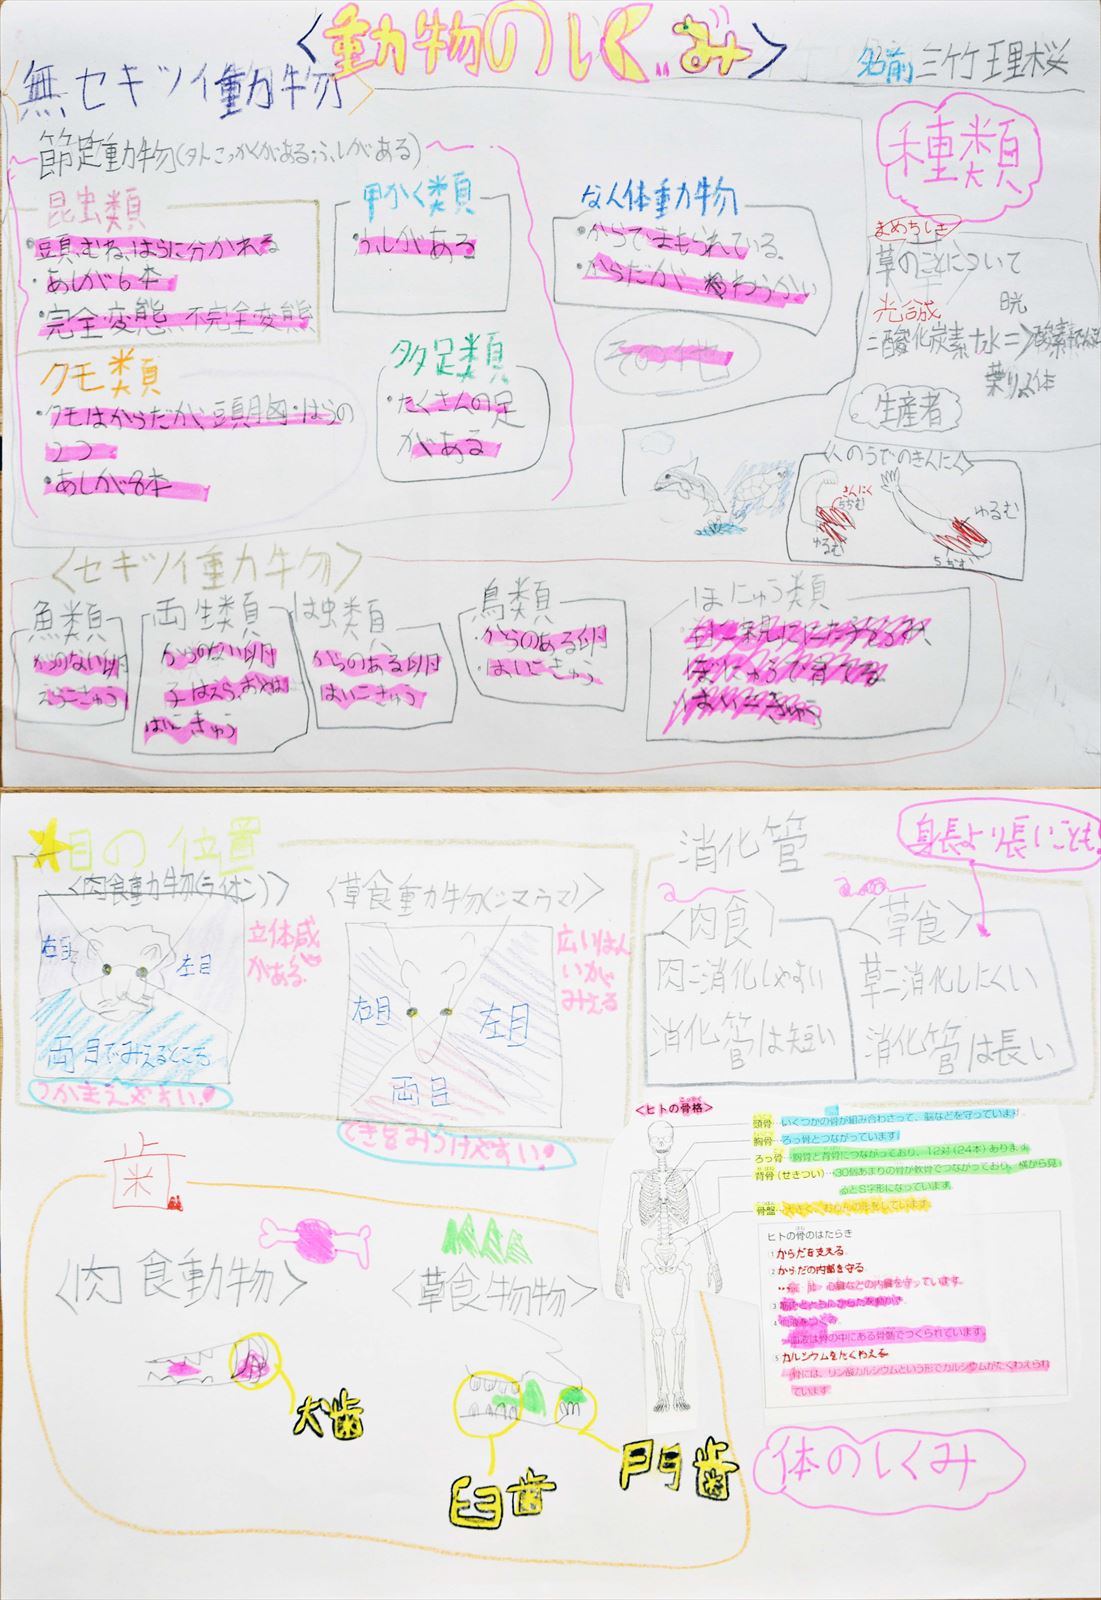 <動物のしくみ>
名前 三竹理桜
無セキツイ動物
種類
節足動物(外こっかくがある、ふしがある)
昆虫類
・頭、むね、はらに分かれる
・あしが6本
・完全変態、不完全変態
甲かく類
・ふしがある
なん体動物
・からでまもられている。
・からだが、やわらかい
その他
クモ類
・クモはからだが、頭胸・はらの
2つ
・あしが8本
多足類
・たくさんの足
がある
まめちしき
草のことについて
光合成
日光
二酸化炭素+水=>酸素+でんぷん
葉りょく体
生産者
<のうでのきんにく>
きんにく
ちぢむ
ゆるむ
ゆるむ
ちぢむ
<セキツイ動物>
魚類
からのない卵
えらこきゅう
両生類
からのない卵
子はえら、おやは
はいこきゅう
は虫類
からのある卵
はいこきゅう
鳥類
・からのある卵
・はいこきゅう
ほにゅう類
・ほにゅうで育てる
・はいこきゅう
目の位置
<肉食動物(ライオン)>
右目
左目
両目でみえるところ
立体感
がある
つかまえやすい!
<草食動物(シマウマ)>
右目
左目
両目
広いはん
いが
みえる
てきをみつけやすい!
消化管
身長より長いことも!
<肉食>
肉=消化しやすい
消化管は短い
<草食>
草=消化しにくい
消化管は長い
歯
<肉食動物>
犬歯
<草食物物>
臼歯
門歯
<ヒトの骨格>
頭骨…いくつかの骨が組み合わさって、脳などを守っています。
胸骨…ろっ骨とつながっています。
ろっ骨…胸骨と背骨につながっており、12対(24本)あります。
背骨(せきつい)…30個あまりの骨が軟骨でつながっており、横から見
るとS字形になっています。
骨盤
ヒトの骨のはたらき
1 からだを支える
2 からだの内部を守る
心臓などの内臓を守っています。
4 血液をつくる
血液は骨の中にある骨髄でつくられています。
5 カルシウムをたくわえる
骨には、リン酸カルシウムという形でカルシウムがたくわえられ
ています。
体のしくみ